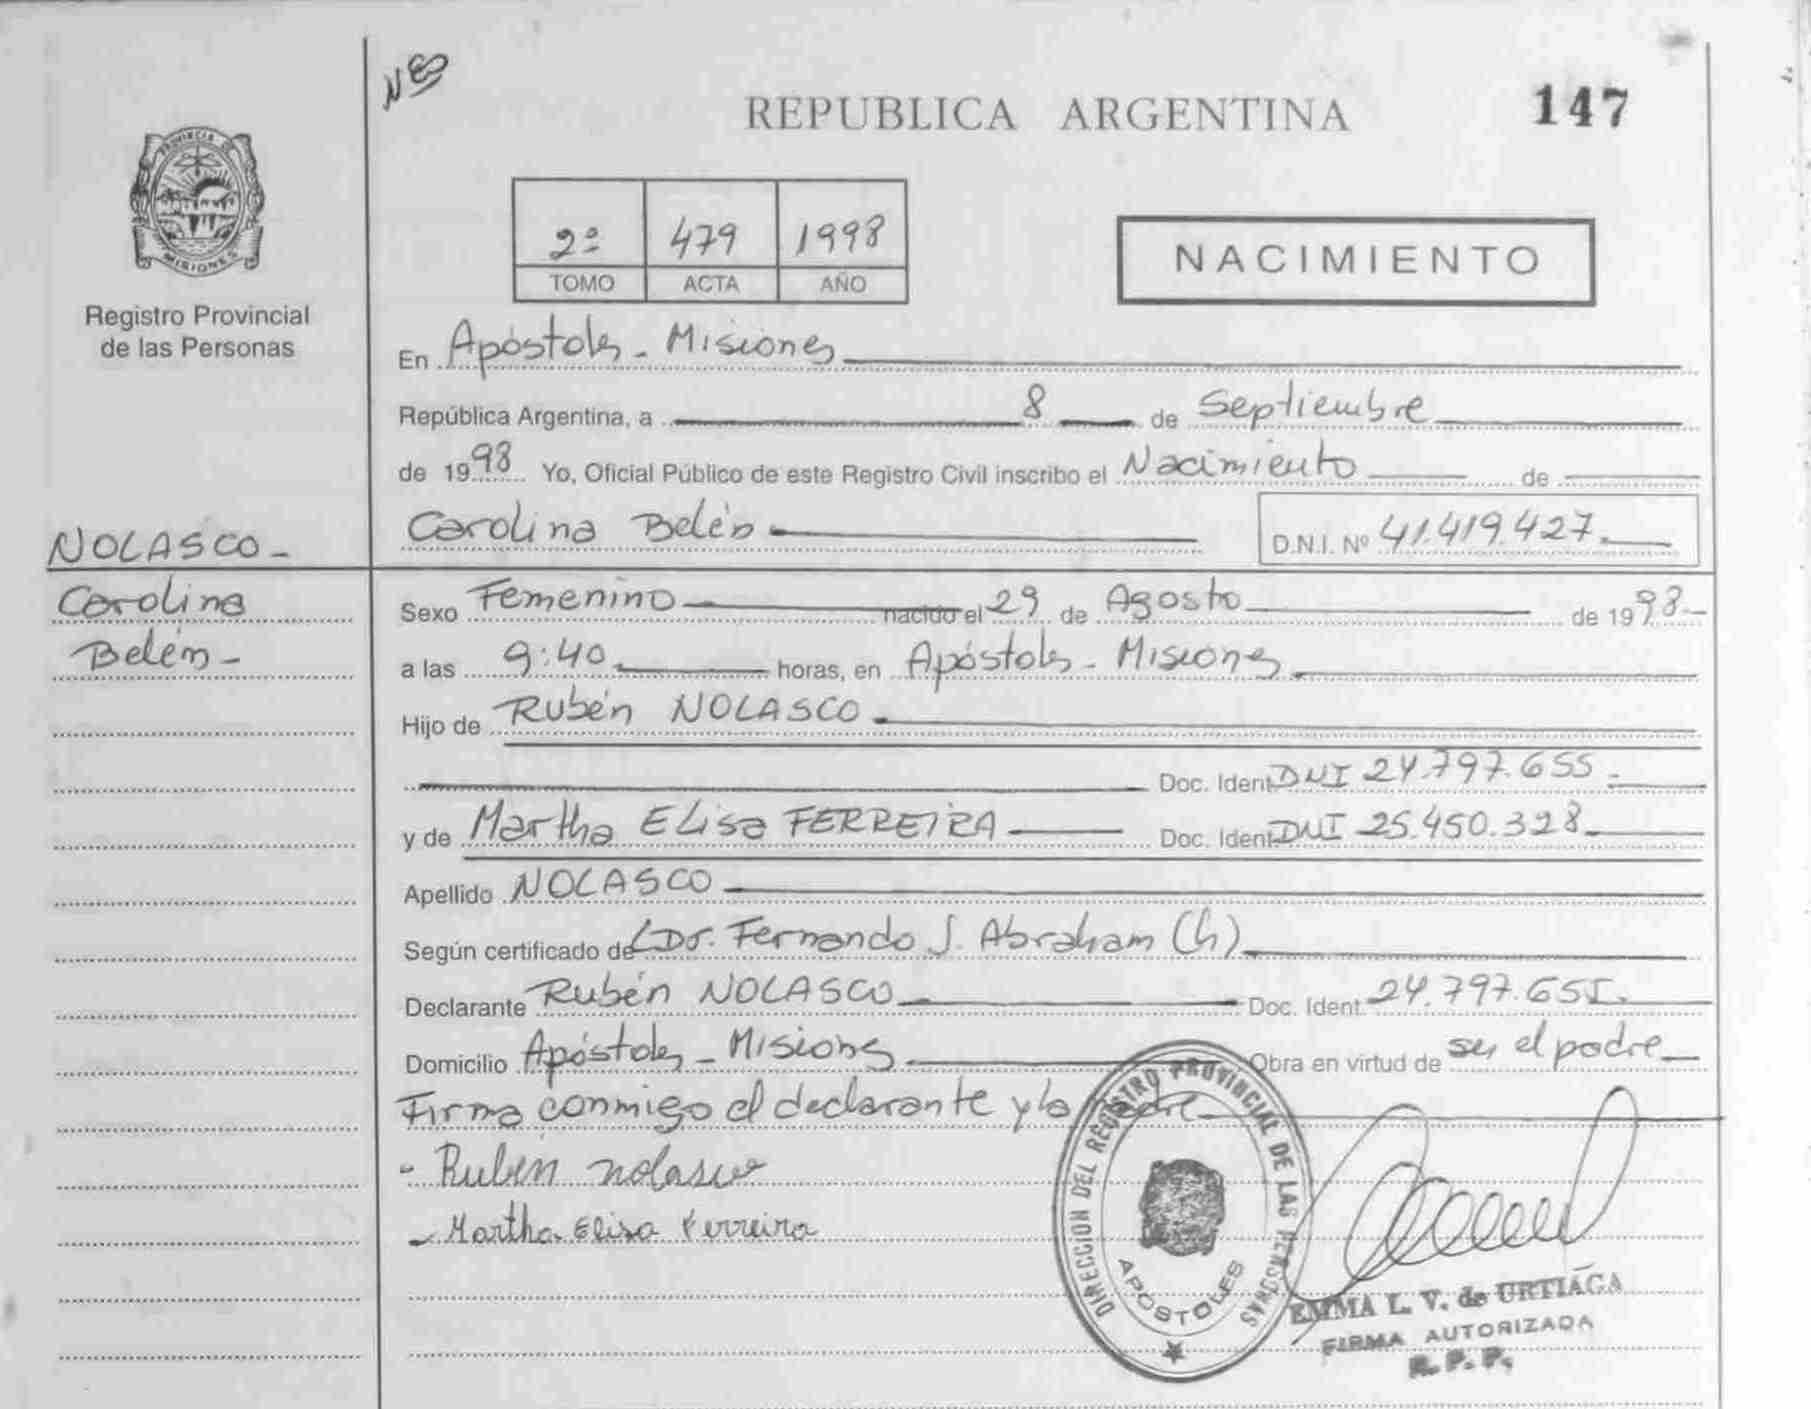 Nº
REPUBLICA ARGENTINA
147
PROVINCIA DE
MISIONES
Registro Provincial
de las Personas
2º 479 1998
TOMO ACTA AÑO
NACIMIENTO
En Apóstoles - Misiones
República Argentina, a 8 de Septiembre
de 1998 Yo, Oficial Público de este Registro Civil inscribo el Nacimiento de
NOLASCO - Carolina Belén D.N.I. Nº 41.419.427.
Carolina
Belén -
Sexo Femenino nacido el 29 de Agosto de 1998.
a las 9:40 horas, en Apóstoles - Misiones
Hijo de Rubén NOLASCO
Doc. Ident DNI 24.797.655.
y de Martha Elisa FERREIRA Doc. Ident DNI 25.450.328.
Apellido NOLASCO
Según certificado del Dr. Fernando J. Abraham (h)
Declarante Rubén NOLASCO Doc. Ident. 24.797.655.
Domicilio Apóstoles - Misiones Obra en virtud de ser el padre
Firma conmigo el declarante y la madre
- Rubén Nolasco
- Martha Elisa Ferreira
DIRECCION DEL REGISTRO PROVINCIAL DE LAS PERSONAS
APOSTOLES
EMMA L. V. de URTIAGA
FIRMA AUTORIZADA
R. P. P.